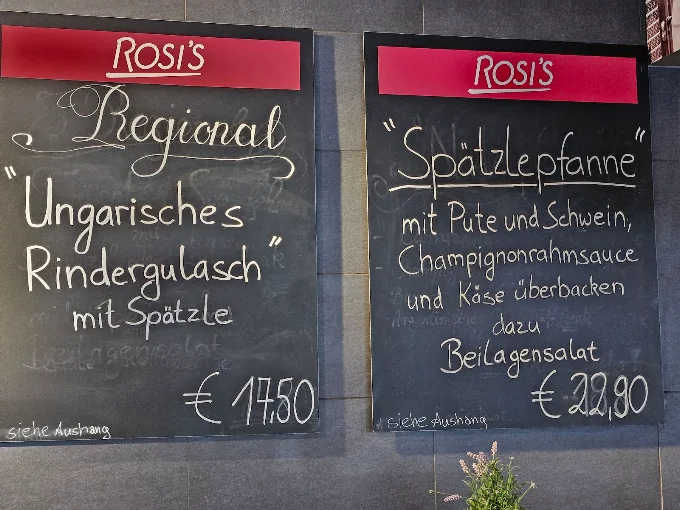 ROSI'S
Regional
"Ungarisches
Rindergulasch"
mit Spätzle
siehe Aushang
ROSI'S
"Spätzlepfanne"
mit Pute und Schwein,
Champignonrahmsauce
und Käse überbacken
dazu
Beilagensalat
siehe Aushang